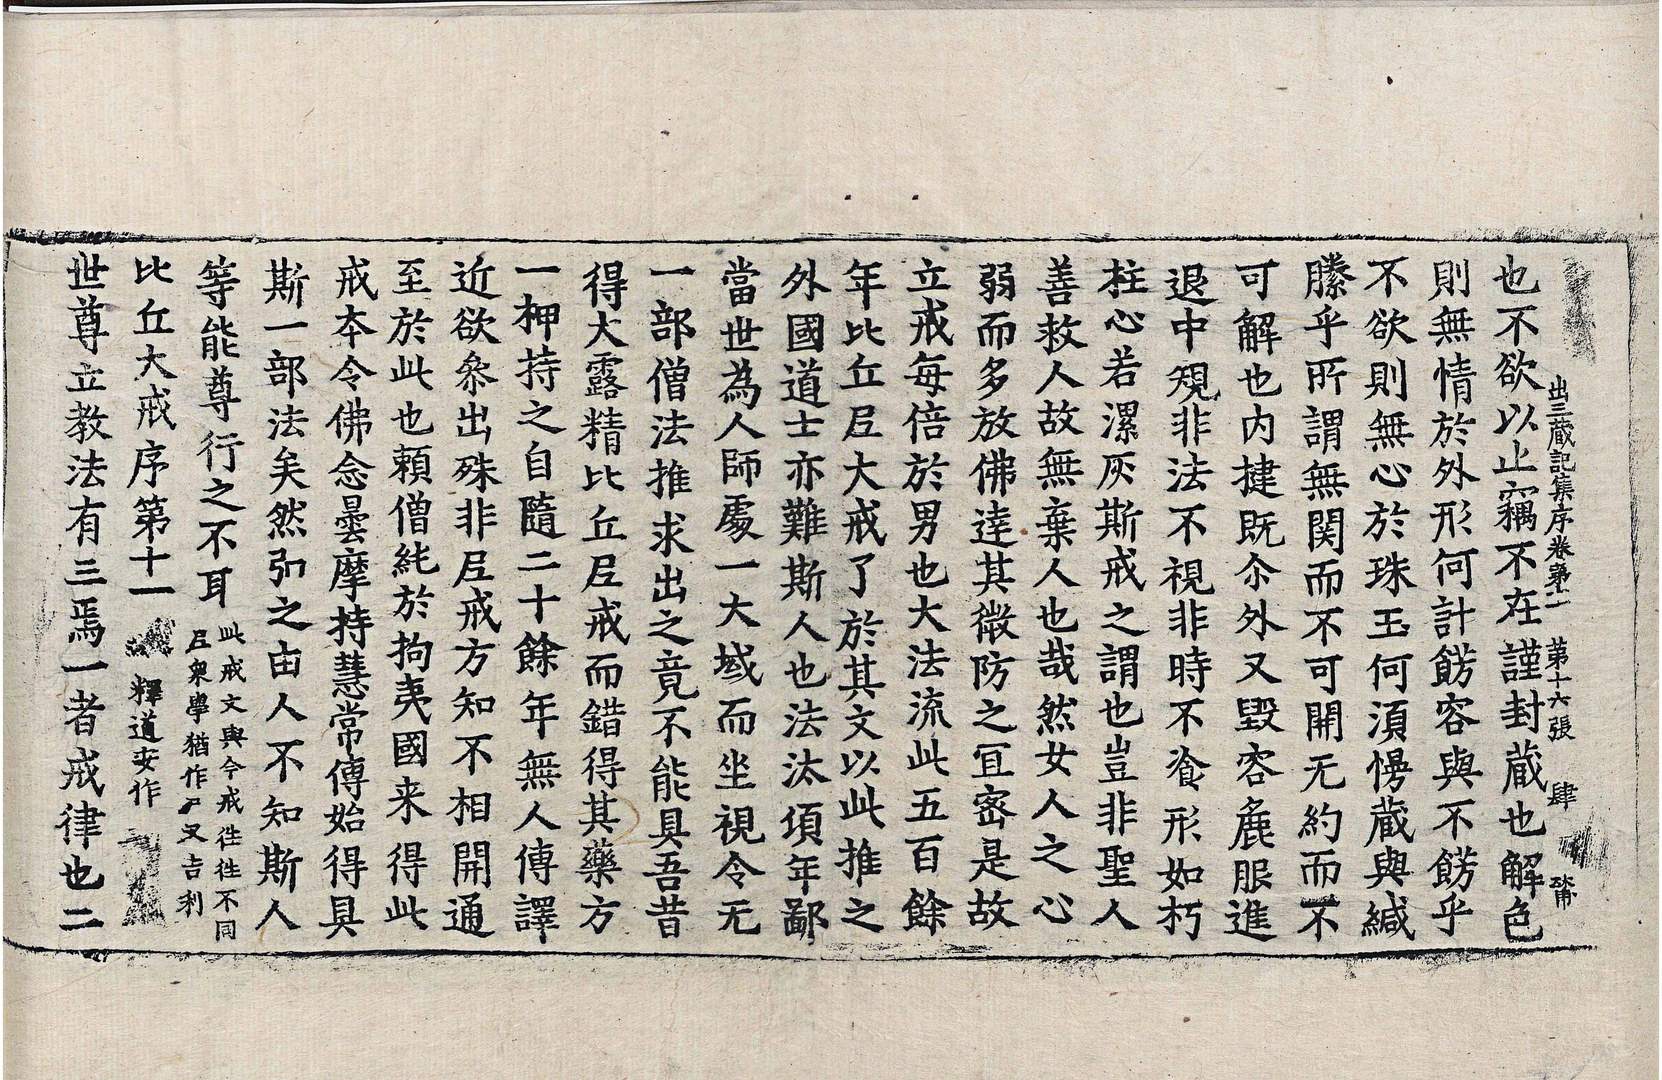 出三藏記集序卷第十一 第十六張 肆
也不欲以止竊不在謹封蔵也解色
則無情於外形何計飾容與不飾乎
不欲則無心於珠玉何湏慢蔵與緘
縢乎所謂無関而不可開无約而不
可解也內揵既尒外又毀容麁服進
退中䂓非法不視非時不飡形如朽
柱心若濕灰斯戒之謂也豈非聖人
善救人故無棄人也哉然女人之心
弱而多放佛達其微防之冝宻是故
立戒每倍於男也大法流此五百餘
年比丘𡰱大戒了於其文以此推之
外國道士亦難斯人也法汰頃年鄙
當世為人師處一大域而坐視令无
一部僧法推求出之竟不能具吾昔
得大露精比丘𡰱戒而錯得其藥方
一柙持之自隨二十餘年無人傳譯
近欲叅出殊非𡰱戒方知不相開通
至於此也頼僧純於拘夷國来得此
戒夲令佛念曇摩持慧常傳始得具
斯一部法矣然弘之由人不知斯人
等能尊行之不耳
此戒文與今戒徃徃不同
𡰱衆學猶作尸叉吉利
比丘大戒序第十一 釋道安作
世尊立教法有三焉一者戒律也二